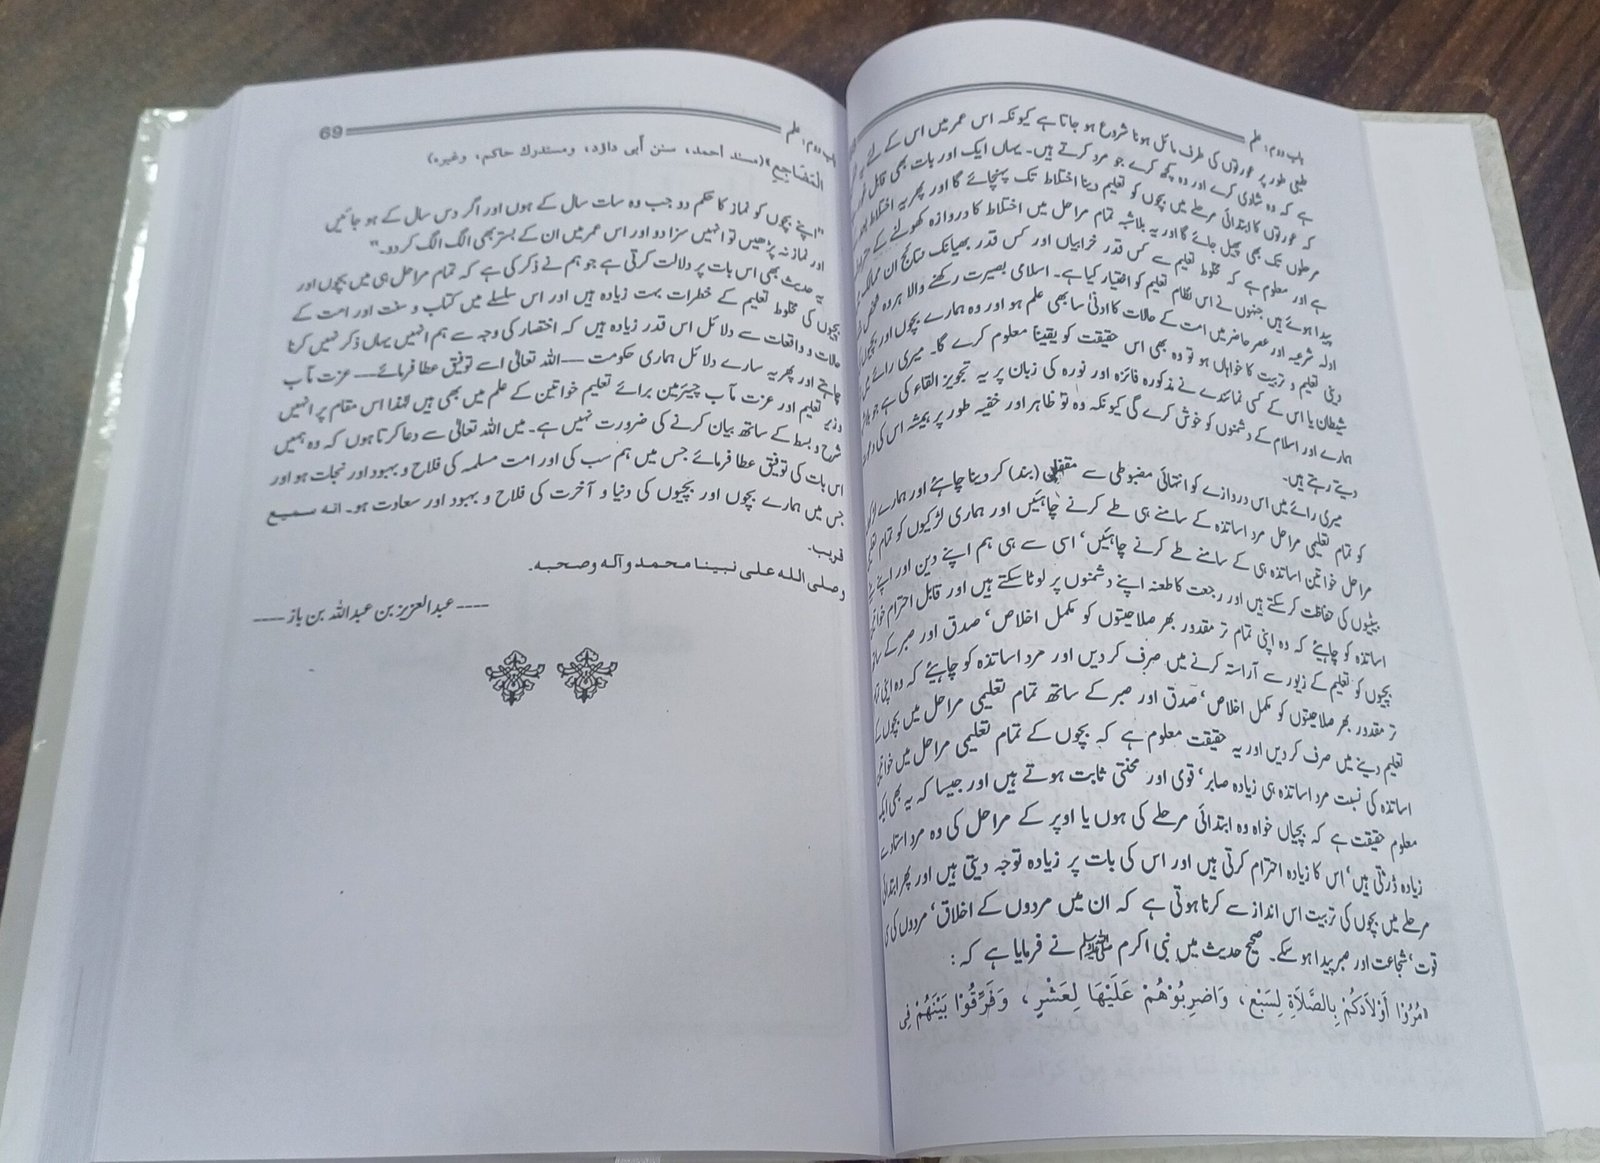 باب دوم: علم
طبعی طور پر عورتوں کی طرف مائل ہونا شروع ہو جاتا ہے کیونکہ اس عمر میں اس کے لئے
ہے کہ وہ شادی کرے اور وہ کچھ کرے جو مرد کرتے ہیں۔ یہاں ایک اور بات بھی قابل
کہ عورتوں کا ابتدائی مرحلے میں بچوں کو تعلیم دینا اختلاط تک پہنچائے گا اور پھر یہ اختلاط
مرحلوں تک بھی پھیل جائے گا اور یہ بلاشبہ تمام مراحل میں اختلاط کا دروازہ کھولنے کے
ہے اور معلوم ہے کہ مخلوط تعلیم سے کس قدر خرابیاں اور کس قدر بھیانک نتائج ان ممالک
پیدا ہوئے ہیں جنہوں نے اس نظام تعلیم کو اختیار کیا ہے۔ اسلامی بصیرت رکھنے والا ہر وہ شخص
ادلہ شرعیہ اور عصر حاضر میں امت کے حالات کا ادنیٰ سا بھی علم ہو اور وہ ہمارے بچوں اور
دینی تعلیم و تربیت کا خواہاں ہو تو وہ بھی اس حقیقت کو یقیناً معلوم کرے گا۔ میری رائے میں
شیطان یا اس کے کسی نمائندے نے مذکورہ فائزہ اور نورہ کی زبان پر یہ تجویز القاء کی ہے جو
ہمارے اور اسلام کے دشمنوں کو خوش کرے گی کیونکہ وہ تو ظاہر اور خفیہ طور پر ہمیشہ اس کی
دیتے رہتے ہیں۔
میری رائے میں اس دروازے کو انتہائی مضبوطی سے مقفل (بند) کر دینا چاہئے اور ہمارے
کو تمام تعلیمی مراحل مرد اساتذہ کے سامنے ہی طے کرنے چاہئیں اور ہماری لڑکیوں کو تمام
مراحل خواتین اساتذہ ہی کے سامنے طے کرنے چاہئیں‘ اسی سے ہی ہم اپنے دین اور اپنے
بیٹیوں کی حفاظت کر سکتے ہیں اور رجعت کا طعنہ اپنے دشمنوں پر لوٹا سکتے ہیں اور قابل احترام
اساتذہ کو چاہیے کہ وہ اپنی تمام تر مقدور بھر صلاحیتوں کو مکمل اخلاص‘ صدق اور صبر کے
بچیوں کو تعلیم کے زیور سے آراستہ کرنے میں صرف کر دیں اور مرد اساتذہ کو چاہیئے کہ وہ اپنی
تر مقدور بھر صلاحیتوں کو مکمل اخلاص‘ صدق اور صبر کے ساتھ تمام تعلیمی مراحل میں بچوں
تعلیم دینے میں صرف کر دیں اور یہ حقیقت معلوم ہے کہ بچوں کے تمام تعلیمی مراحل میں
اساتذہ کی نسبت مرد اساتذہ ہی زیادہ صابر‘ قوی اور محنتی ثابت ہوتے ہیں اور جیسا کہ یہ بھی
معلوم حقیقت ہے کہ بچیاں خواہ وہ ابتدائی مرحلے کی ہوں یا اوپر کے مراحل کی وہ مرد استاد
زیادہ ڈرتی ہیں‘ اس کا زیادہ احترام کرتی ہیں اور اس کی بات پر زیادہ توجہ دیتی ہیں اور پھر
مرحلے میں بچوں کی تربیت اس انداز سے کرنا ہوتی ہے کہ ان میں مردوں کے اخلاق‘ مردوں کی
قوت‘ شجاعت اور صبر پیدا ہو سکے۔ صحیح حدیث میں نبی اکرم ﷺ نے فرمایا ہے کہ:
«مُرُوْا أَوْلَادَكُمْ بِالصَّلَاةِ لِسَبْعٍ، وَاضْرِبُوْهُمْ عَلَيْهَا لِعَشْرٍ، وَفَرِّقُوْا بَيْنَهُمْ فِي
باب دوم: علم 69
الْمَضَاجِعِ»(مسند أحمد، سنن أبي داؤد، ومستدرك حاكم، وغيره)
"اپنے بچوں کو نماز کا حکم دو جب وہ سات سال کے ہوں اور اگر دس سال کے ہو جائیں
اور نماز نہ پڑھیں تو انہیں سزا دو اور اس عمر میں ان کے بستر بھی الگ الگ کر دو۔"
یہ حدیث بھی اس بات پر دلالت کرتی ہے جو ہم نے ذکر کی ہے کہ تمام مراحل ہی میں بچوں اور
بچیوں کی مخلوط تعلیم کے خطرات بہت زیادہ ہیں اور اس سلسلے میں کتاب و سنت اور امت کے
حالات و واقعات سے دلائل اس قدر زیادہ ہیں کہ اختصار کی وجہ سے ہم انہیں یہاں ذکر نہیں کرنا
چاہتے اور پھر یہ سارے دلائل ہماری حکومت ---اللہ تعالیٰ اسے توفیق عطا فرمائے--- عزت مآب
وزیر تعلیم اور عزت مآب چیئرمین برائے تعلیم خواتین کے علم میں بھی ہیں لہٰذا اس مقام پر انہیں
شرح و بسط کے ساتھ بیان کرنے کی ضرورت نہیں ہے۔ میں اللہ تعالیٰ سے دعا کرتا ہوں کہ وہ ہمیں
اس بات کی توفیق عطا فرمائے جس میں ہم سب کی اور امت مسلمہ کی فلاح و بہبود اور نجات ہو اور
جس میں ہمارے بچوں اور بچیوں کی دنیا و آخرت کی فلاح و بہبود اور سعادت ہو۔ انه سميع
قريب۔
وصلى الله على نبينا محمد وآله وصحبه۔
---- عبدالعزیز بن عبداللہ بن باز ----